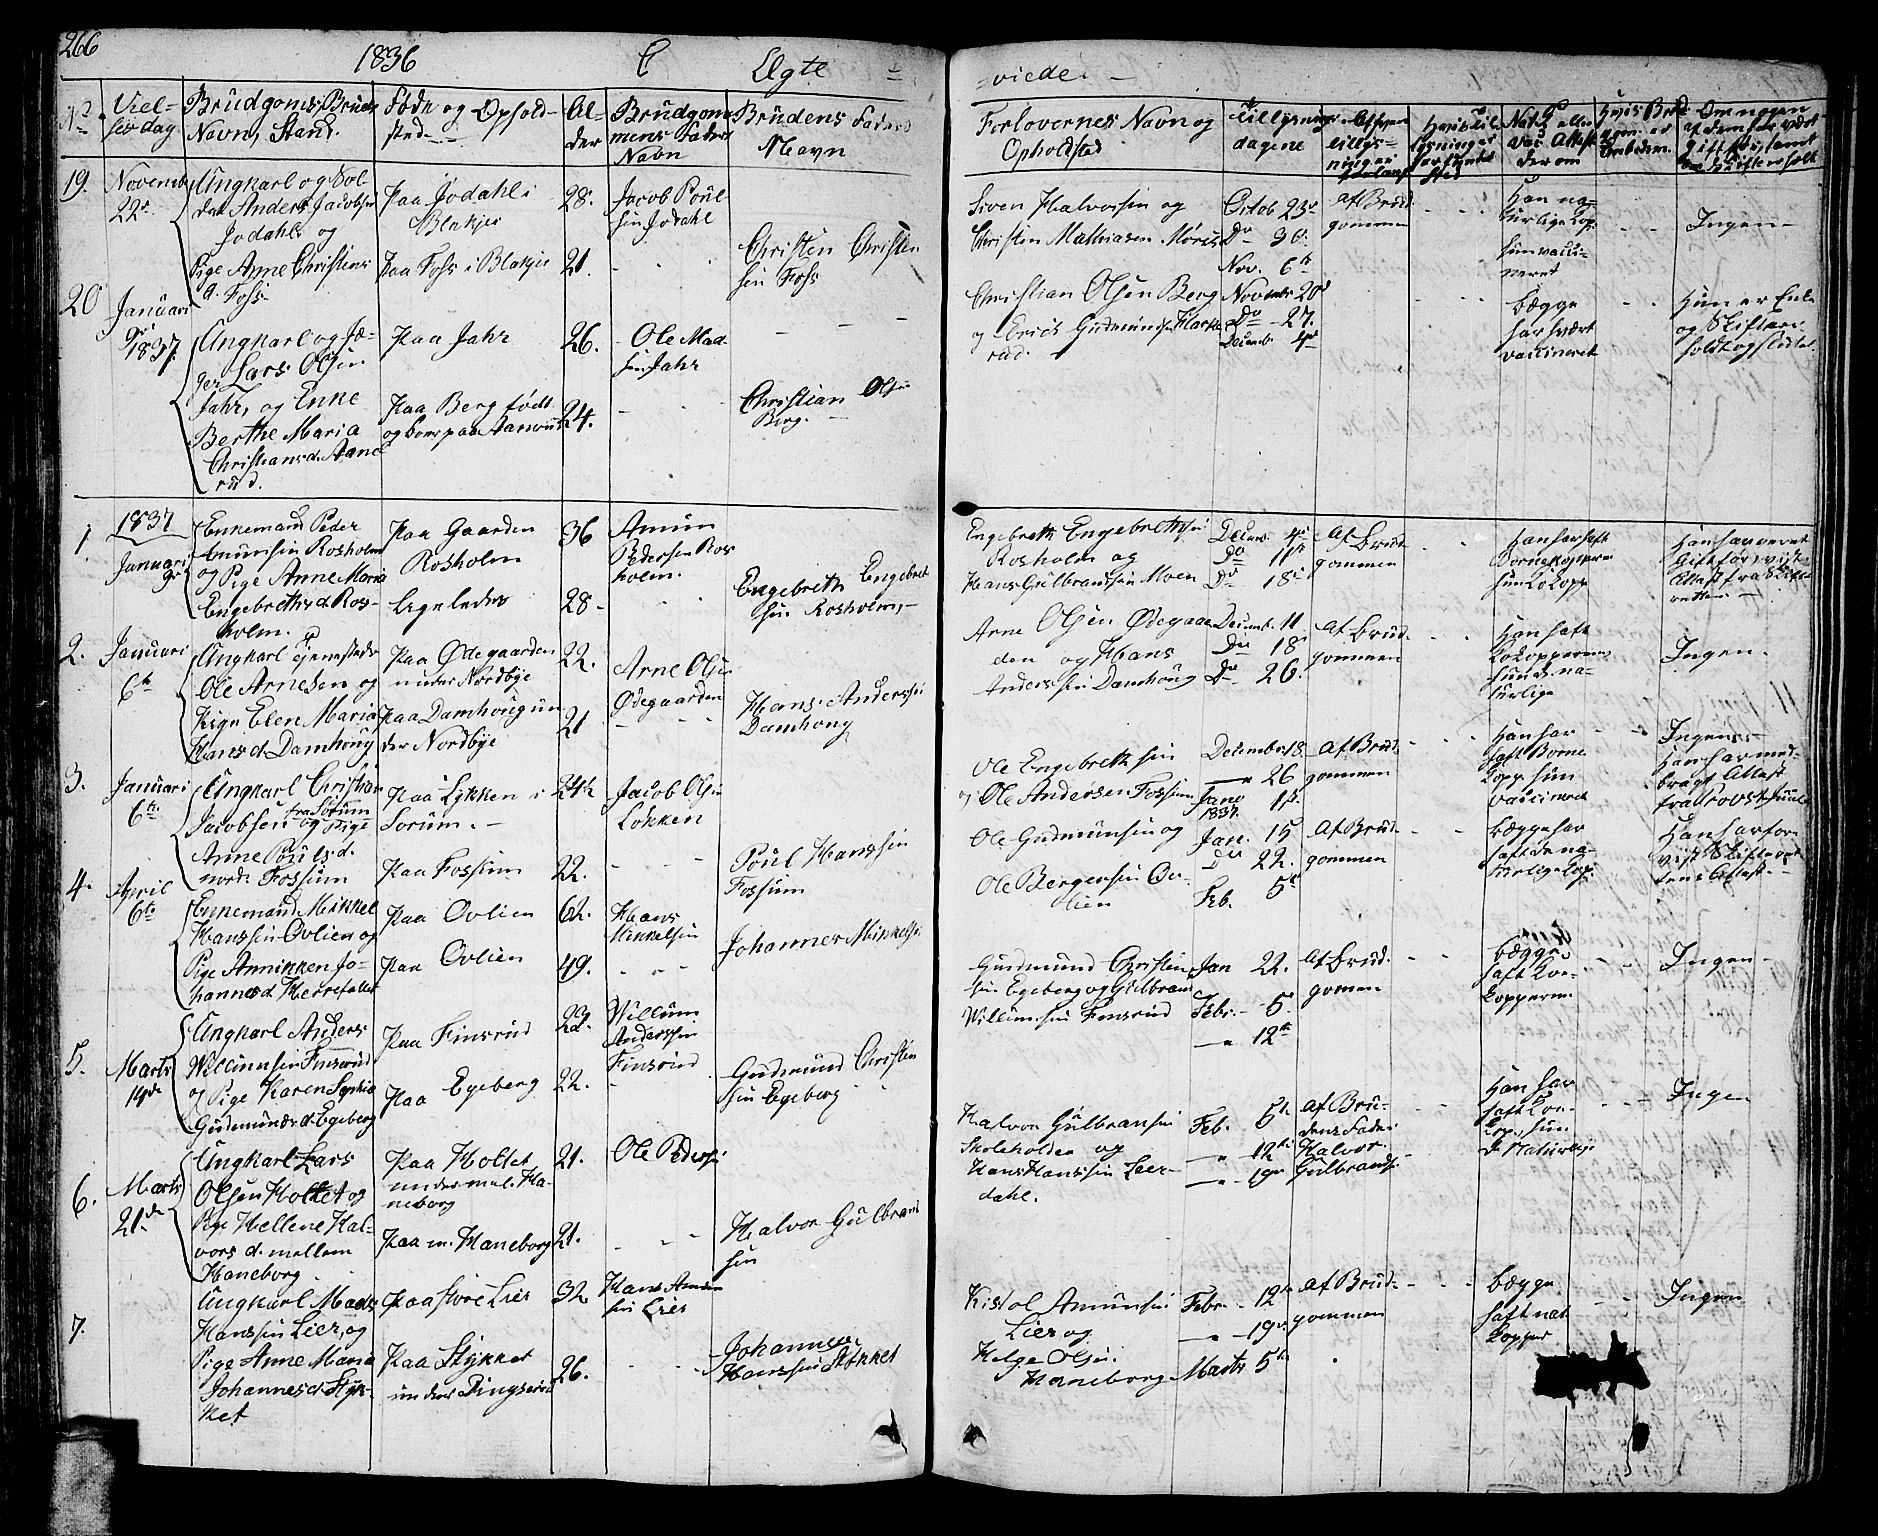 266
1836 C Egte = =viede. —
No. Viel-
ses dag
Brudgoms, Bruds
Navn, Stand.
Føde og Ophold-
sted
Al-
der
Brudgom-
mens Faders
Navn
Brudens Faders
Navn
Forlovernes Navn og
Opholdsted
Tillysnings-
dagene
Af hvem
tillys-
ningen
forlangt
Om nogen
19. Novemb
22de
Ungkarl og Sol-
dat Anders Jacobsen
Jodahl og
Pige Anne Christens
d. Foss
Paa Jodahl i
Blakjer
Paa Foss i Blakjer
28.
21.
Jacob Poul-
sen Jodahl
Christen Christen
sen Foss
Siven Halvorsen og
Christen Mathiasen Moris
Octob. 23de
Do 30.
Nov. 6te
Af Brud-
gommen
Han na-
turlige Kop.
hun vacci-
neret
Ingen
20 Januari
1837.
Ungkarl og Jæ-
ger Lars Olsen
Jahr, og Enke
Berthe Maria
Christians d. Aane-
rud.
Paa Jahr
Paa Berg født
og boer paa Aanerud
26.
24.
Ole Mad-
sen Jahr
Christian Olsen
Berg.
Christian Olsen Berg
og Erich Gudmunds. Harke-
rud.
Novembr 20de
Do 27.
Decemb. 4de
begge
har hvært
vaccineret
Hun er Enke
og Skiftet er
holdt og sluttet.
1837
1. Januari
Enkemand Peder
Amunsen Rosholm
og Pige Anne Maria
Engebreths d. Ros-
holm.
Paa Gaarden
Rosholm
Ligeledes
36
28
Amun
Pedersen Ros-
holm.
Engebreth Engebret
sen Rosholm,
Engebreth Engebrethsen
Rosholm og
Hans Gulbrandsen Moen
Decemb. 4de
Do 11te
Do 18de
Af Brud-
gommen
Han har haft
Børnekopperne
hun Kokopp
Han har veret
Gift før, vist
Attest fra Skifte-
retten.
2. Januari
6te
Ungkarl Tjenestedr
Ole Arnesen og
Pige Elen Maria
Hans d. Damhoug
Paa Ødegaarden
under Nordbye
Paa Damhoug un-
der Nordbye
22.
21
Arne Olsen
Ødegaarden
Hans Anderssen
Damhoug
Arne Olsen Ødegaar
den og Hans
Anderssen Damhoug
Decemb. 11
Do 18
Do 26.
Af Brud-
gommen
Han haft
Kokopperne
hun de na-
turlige
Ingen.
3. Januari
6te
Ungkarl Christian
Jacobsen fra Sorum
og Pige
Anne Pouls d.
nordr Fossum
Paa Lykken i
Sorum.
Paa Fossum
24½
22.
Jacob Olsen
Lokken
Poul Hanssen
Fossum
Ole Engebrethsen
og Ole Andersen Fossum
December 18
26
Janr 1ste
1837.
Af Brud-
gommen
Han har
haft Børne-
kopp. hun
vaccineret
Ingen
Han har med-
bragt Attest
fra Provst
4. April
6te
Enkemand Mikkel
Hanssen Ovlien og
Pige Annikken Jo-
hannes d. Herrefallet
Paa Ovlien
Paa Ovlien
62.
49.
Hans
Mikkelsen
Johannes Mikkelsen
Ole Gudmunsen og
Ole Bergersen Ov-
lien
Jan. 15
Do 22.
Feb. 5te
Af Brud-
gommen
begge har
haft de na-
turlige Kop.
Han har fore-
vist Skifteret-
tens Attest.
5. Marts
14de
Ungkarl Anders
Willumsen Finsrud
og Pige Karen Sophia
Gudemunds d. Egeberg
Paa Finsrud
Paa Egeberg
23.
22.
Willum
Anderssen
Finsrud
Gudmund Christen
sen Egeberg
Gudmund Christen
sen Egeberg og Gulbrand
Willumsen Finsrud
Jan 22.
Febr. 5.
12te
Af Brud-
gomen
begge
haft Koe-
kopperne
Ingen
6. Marts
21de
Ungkarl Lars
Olsen Holtet og
Pige Hellene Hal-
vors d. mellem
Haneborg
Paa Holtet
under mel. Ha-
neborg
Paa m. Haneborg
21.
21.
Ole Pedersen
Halvor Gulbrand
sen
Halvor Gulbransen
Skoleholder og
Hans Hanssen Lier-
dahl.
Feb. 5te
12te
19de
Af Bru-
dens Fader
Halvor
Gulbrands.
Han har
haft Koe-
kop., hun
de Naturlige
Ingen
7.
Ungkarl Mads
Hanssen Lier, og
Pige Anne Maria
Johannes d. Styk-
ket
Paa store Lier
Paa Stykket
under Dingserud
32.
26.
Hans Amun
sen Lier
Johannes
Hanssen Stykket
Kistol Amunsen
Lier og
Helge Olsen
Haneborg
Febr. 12te
19de
Marts 5te
Af Brud-
gommen
begge
haft nat.
kopper
Ingen